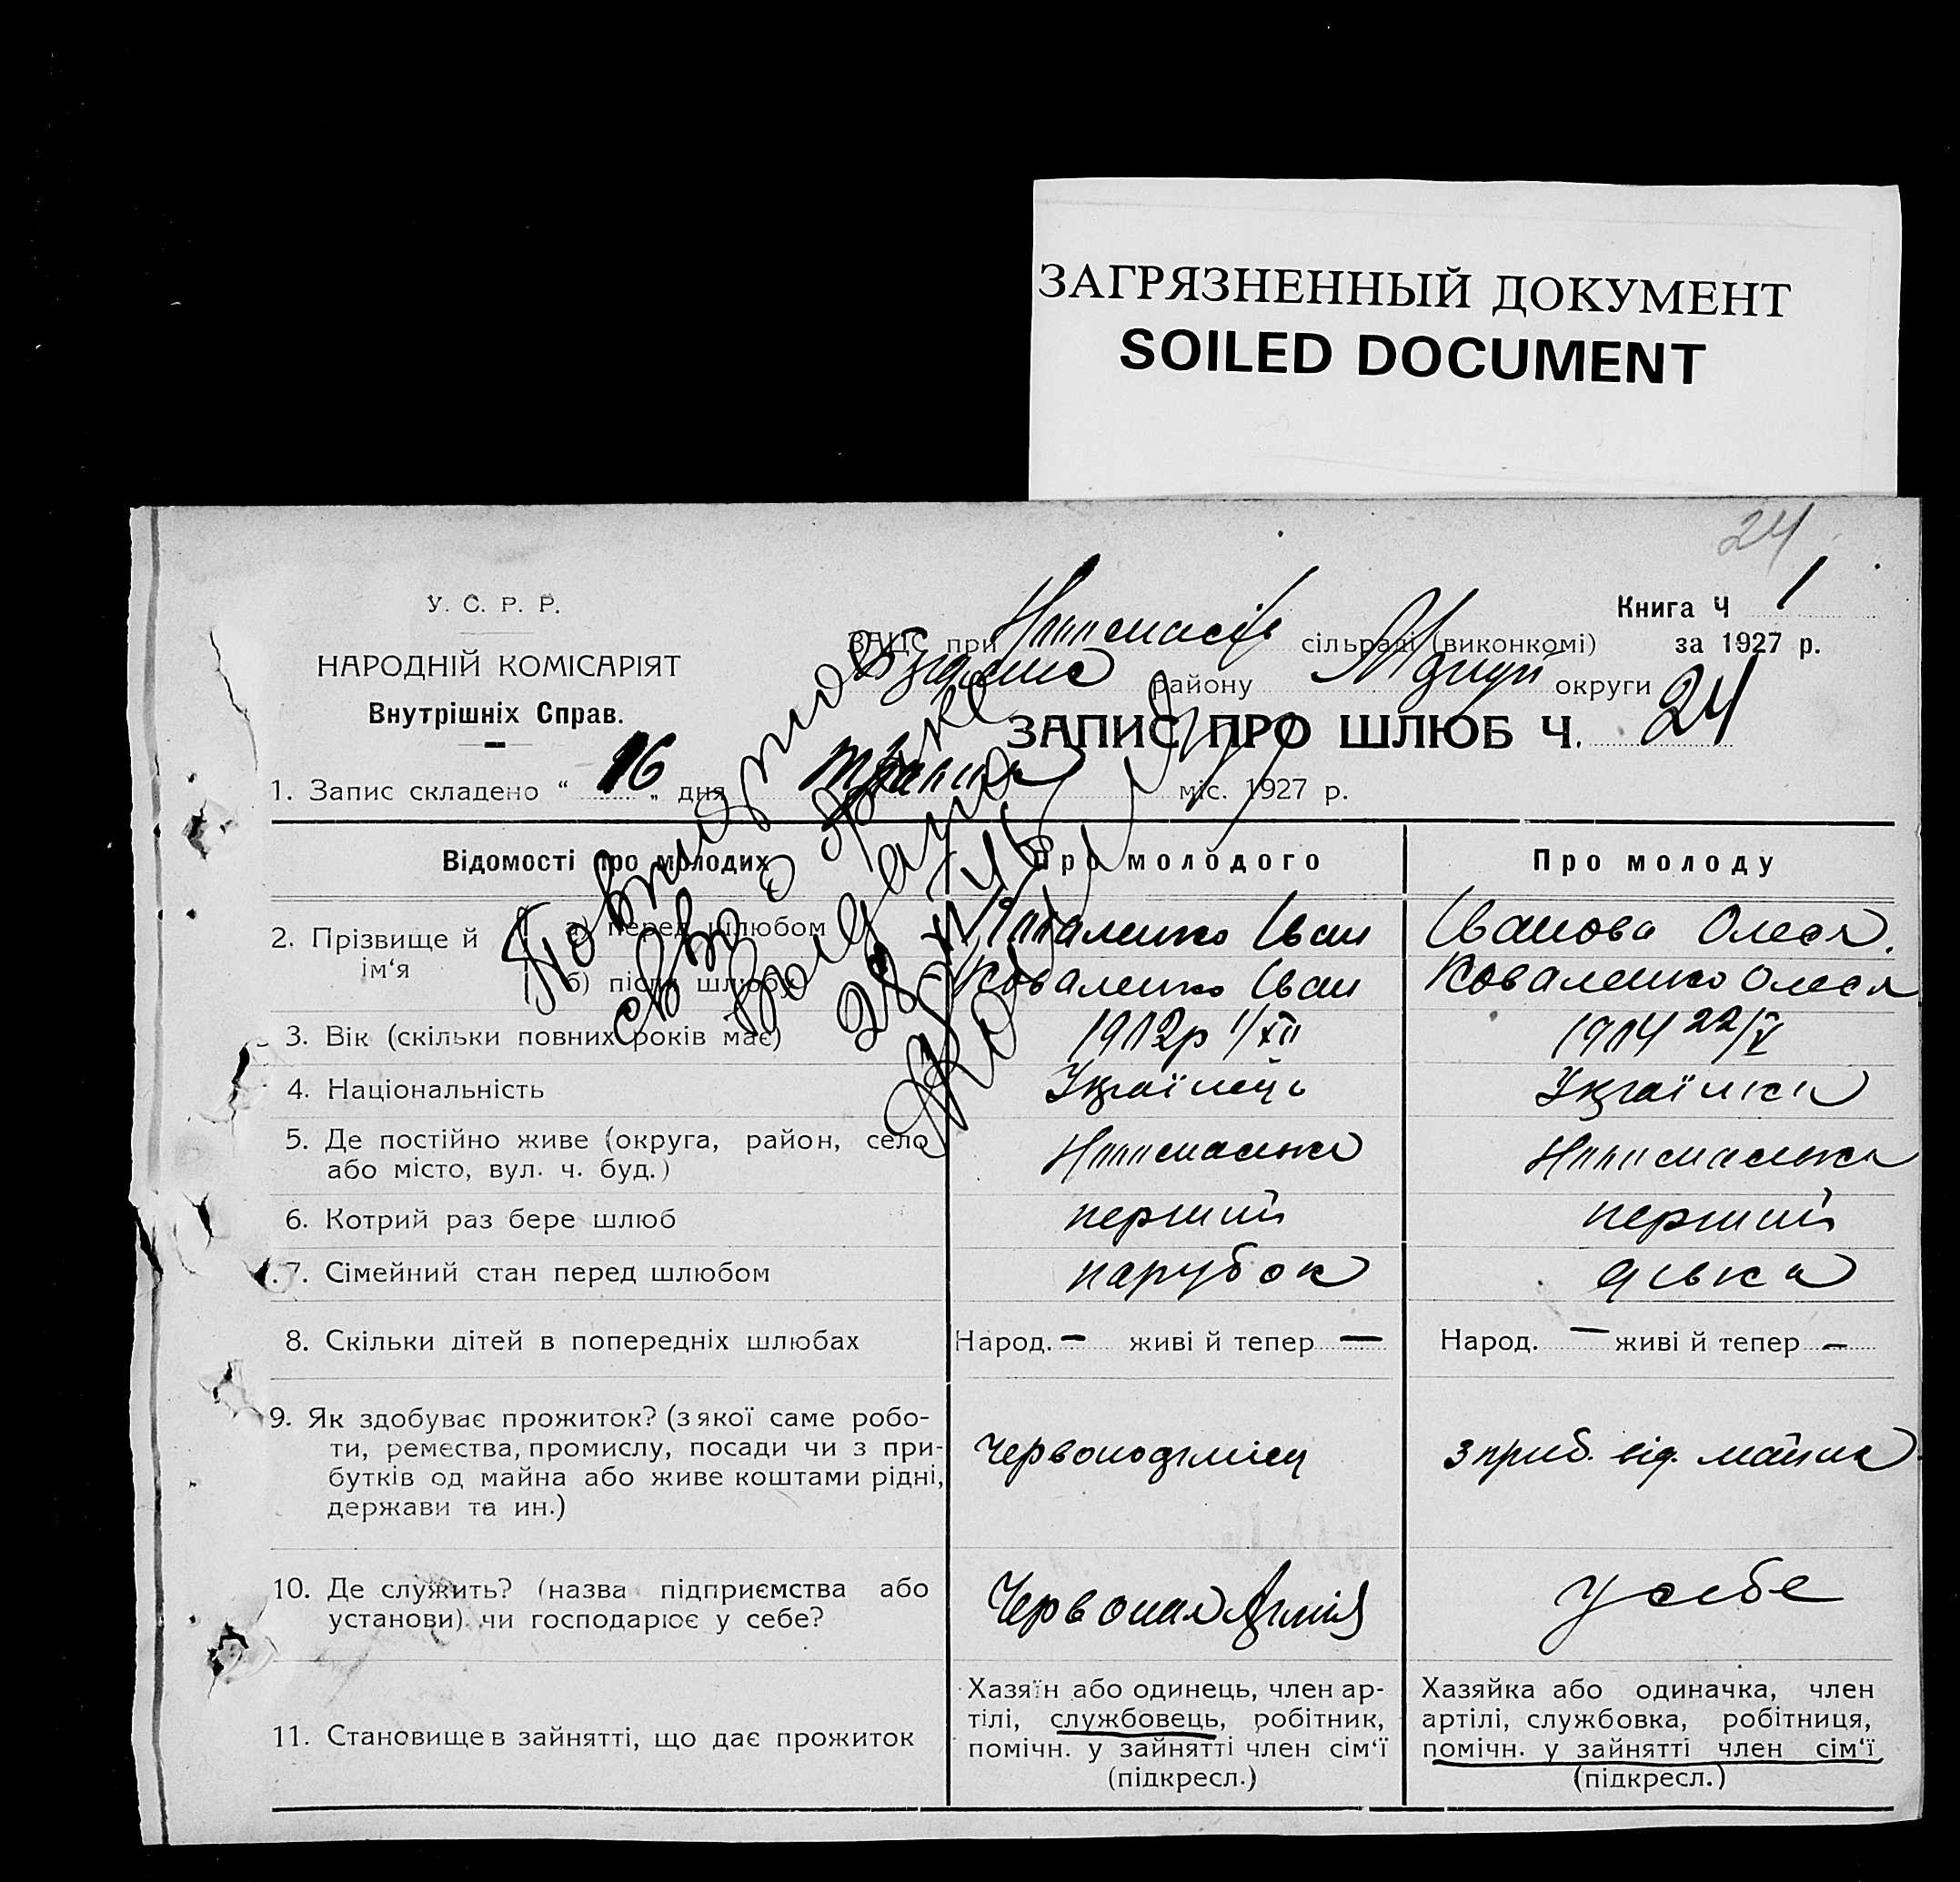 ЗАГРЯЗНЕННЫЙ ДОКУМЕНТ
SOILED DOCUMENT
24
У. С. Р. Р.
НАРОДНІЙ КОМІСАРІЯТ
Внутрішніх Справ.
Книга Ч 1
за 1927 р.
ЗАЦС при сільраді (виконкомі)
району округи
ЗАПИС ПРО ШЛЮБ Ч. 24
1. Запис складено “ 16 „ дня травня міс. 1927 р.
Відомості про молодих
Про молодого
Про молоду
2. Прізвище й ім‘я
а) перед шлюбом
Коваленко Іван
Іванова Олеся
б) після шлюбу
Коваленко Іван
Коваленко Олеся
3. Вік (скільки повних років має)
1912р 1/XII
1914 22/V
4. Національність
Українець
Українка
5. Де постійно живе (округа, район, село
або місто, вул. ч. буд.)
6. Котрий раз бере шлюб
перший
перший
7. Сімейний стан перед шлюбом
парубок
дівка
8. Скільки дітей в попередніх шлюбах
Народ. — живі й тепер —
Народ. — живі й тепер —
9. Як здобуває прожиток? (з якої саме робо-
ти, ремества, промислу, посади чи з при-
бутків од майна або живе коштами рідні,
держави та ин.)
Червоноармієц
з приб. від. майна
10. Де служить? (назва підприємства або
установи) чи господарює у себе?
Червоная Армія
у себе
11. Становище в зайнятті, що дає прожиток
Хазяїн або одинець, член ар-
тілі, службовець, робітник,
помічн. у зайнятті член сім‘ї
(підкресл.)
Хазяйка або одиначка, член
артілі, службовка, робітниця,
помічн. у зайнятті член сім‘ї
(підкресл.)